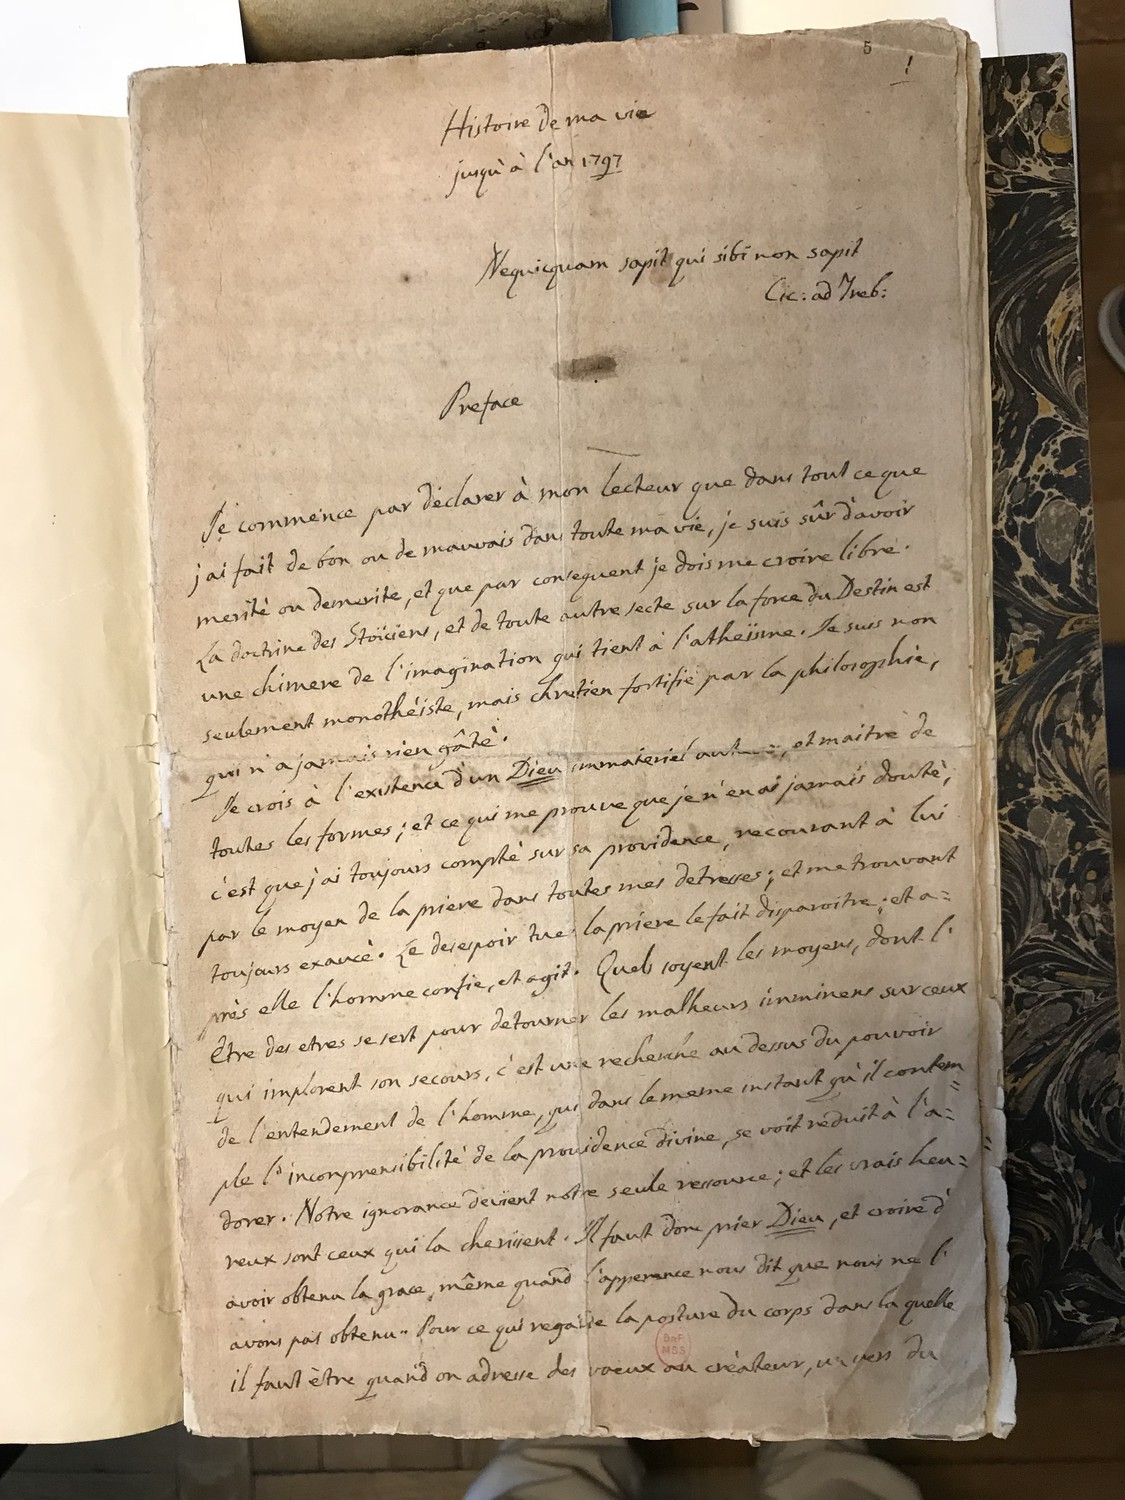 5
1
Histoire de ma vie
jusqu'à l'an 1797
Nequicquam sapit qui sibi non sapit
Cic: ad Treb:
Preface
Je commence par déclarer à mon lecteur que dans tout ce que
j'ai fait de bon ou de mauvais dans toute ma vie, je suis sûr d'avoir
merité ou demerite, et que par consequent je dois me croire libre.
La doctrine des Stoïciens, et de toute autre secte sur la force du Destin est
une chimere de l'imagination qui tient à l'atheïsme. Je suis non
seulement monothéiste, mais chretien fortifié par la philosophie,
qui n'a jamais rien gâté.
Je crois à l'existence d'un Dieu immateriel, et maitre de
toutes les formes; et ce qui me prouve que je n'en ai jamais douté,
c'est que j'ai toujours compté sur sa providence, recourant à lui
par le moyen de la priere dans toutes mes detresses; et me trouvant
toujours exaucé. Le desespoir tue: la priere le fait disparoitre; et a=
près elle l'homme confie, et agit. Quels soyent les moyens, dont l'
Être des etres se sert pour detourner les malheurs imminens sur ceux
qui implorent son secours, c'est une recherche au dessus du pouvoir
de l'entendement de l'homme, qui dans le meme instant qu'il contem=
ple l'incomprensibilité de la providence divine, se voit reduit à l'a=
dorer. Notre ignorance devient notre seule ressource; et les vrais heu=
reux sont ceux qui la cherissent. Il faut donc prier Dieu, et croire d'
avoir obtenu la grace, même quand l'apperence nous dit que nous ne l'
avons pas obtenu. Pour ce qui regarde la posture du corps dans la quelle
il faut être quand on adresse des voeux au créateur, un vers du
BnF
MSS